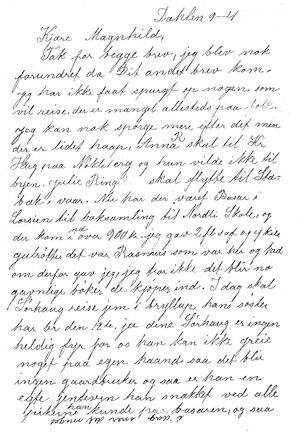 Dahlen 9-4
Kjære Magnhild,
Tak for begge brev, jeg blev nok
forundret da Dit andet brev kom.
jeg har ikke faat spurgt op nogen som
vil reise, der er mange allesteds paa
jeg kan nok spørge mere efter det men
der er lidet haap, Anna R skal til Kr
Haug paa Nøkleberg og hun vilde ikke til
byen, Julie Ring skal flytte til Sta-
bæk i vaar. Nu har der været Basar i
til boksamling til Nordli Skole, og
der kom ind over 900 kr. jeg gav 2 fl saf og
gulrøtter det var Rasmus som var her og bad
om derfor gav jeg, jeg tror ikke det blir no
gavnlige bøker de kjøper ind. I dag skal
Sørhaug reise jem i bryllup hans søster
har br den 10de. ja denne Sørhaug er ingen
heldig fyr for os han kan ikke greie
noget paa egen haand saa det blir
ingen gaardbruker og saa er han en
egte jentefut han snakket ved alle
pikerne han kunde paa basaren, og saa